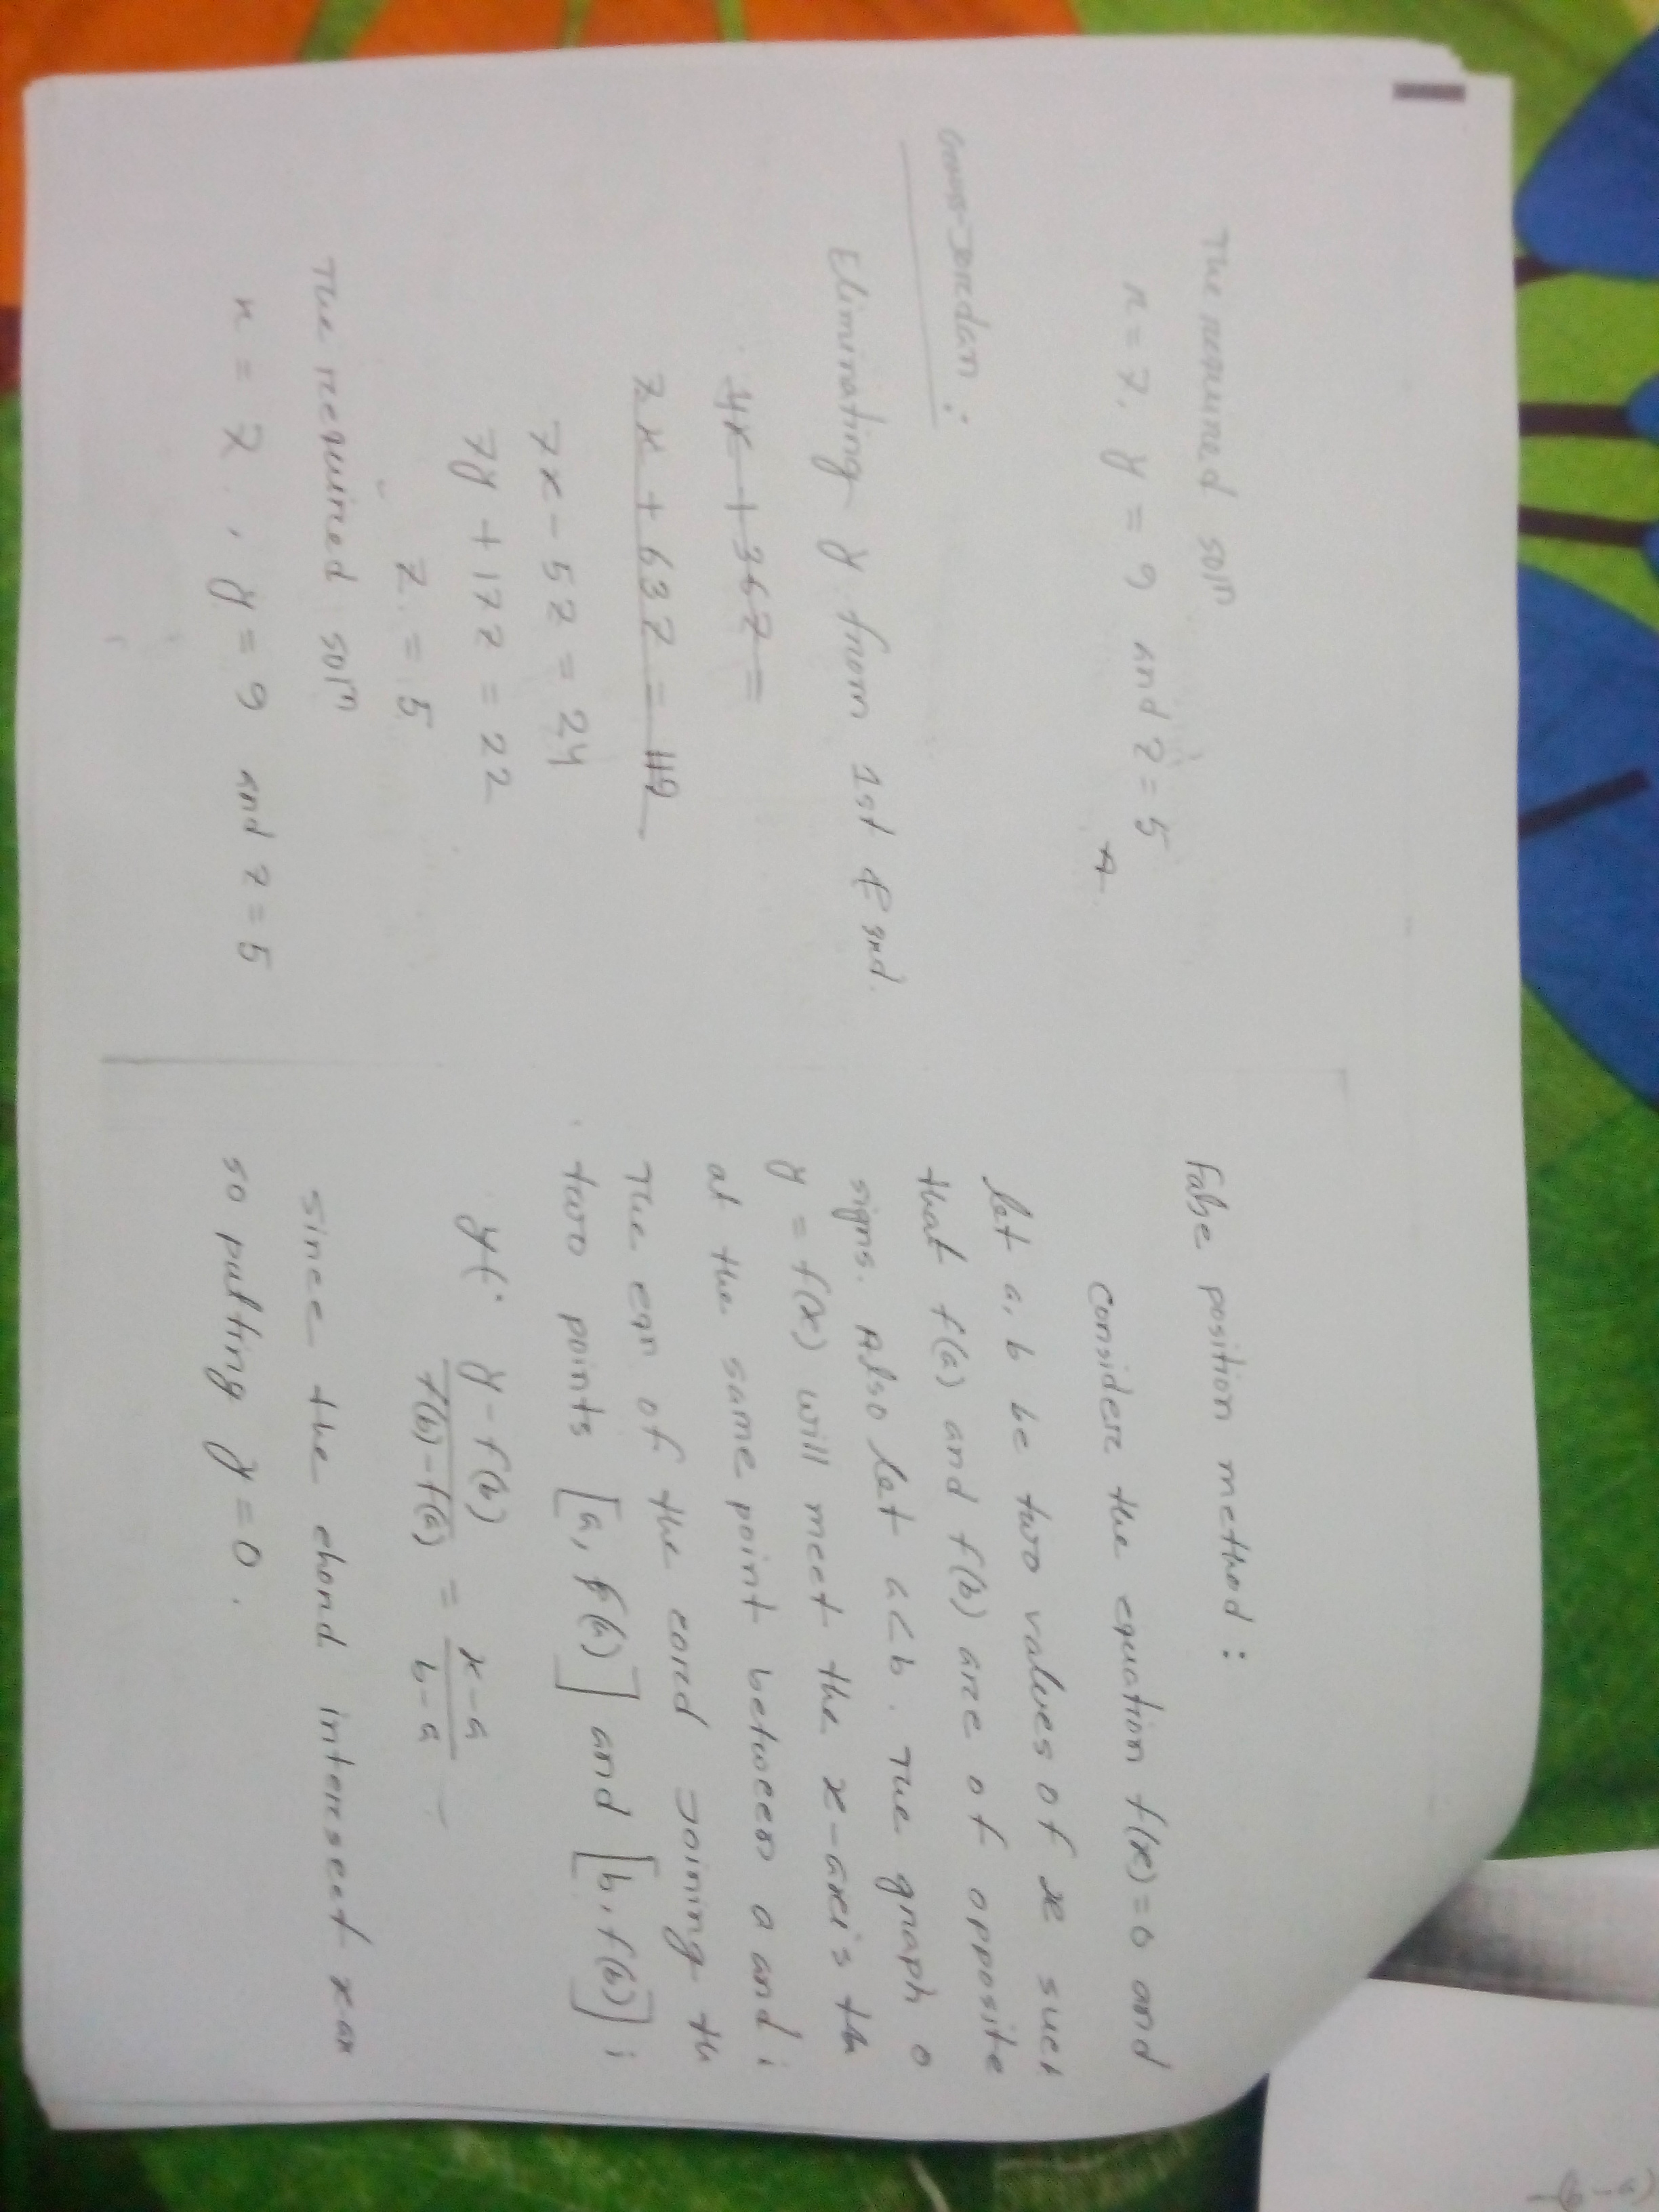 The required soln
x = 7, y = 9 and z = 5
Gauss-Jordan :
Eliminating y from 1st & 3rd.
4x + 36z =
7x + 63z = 119
7x - 5z = 24
7y + 17z = 22
z = 5
The required soln
x = 7, y = 9 and z = 5
False position method :
consider the equation f(x) = 0 and
let a, b be two values of x such
that f(a) and f(b) are of opposite
signs. Also let a < b. The graph o
y = f(x) will meet the x-axis th
at the same point between a and
The eqn of the cord Joining th
two points [a, f(a)] and [b, f(b)] i
y - f(b) / f(b) - f(a) = x - a / b - a
since the chord intersect x ax
so putting y = 0.